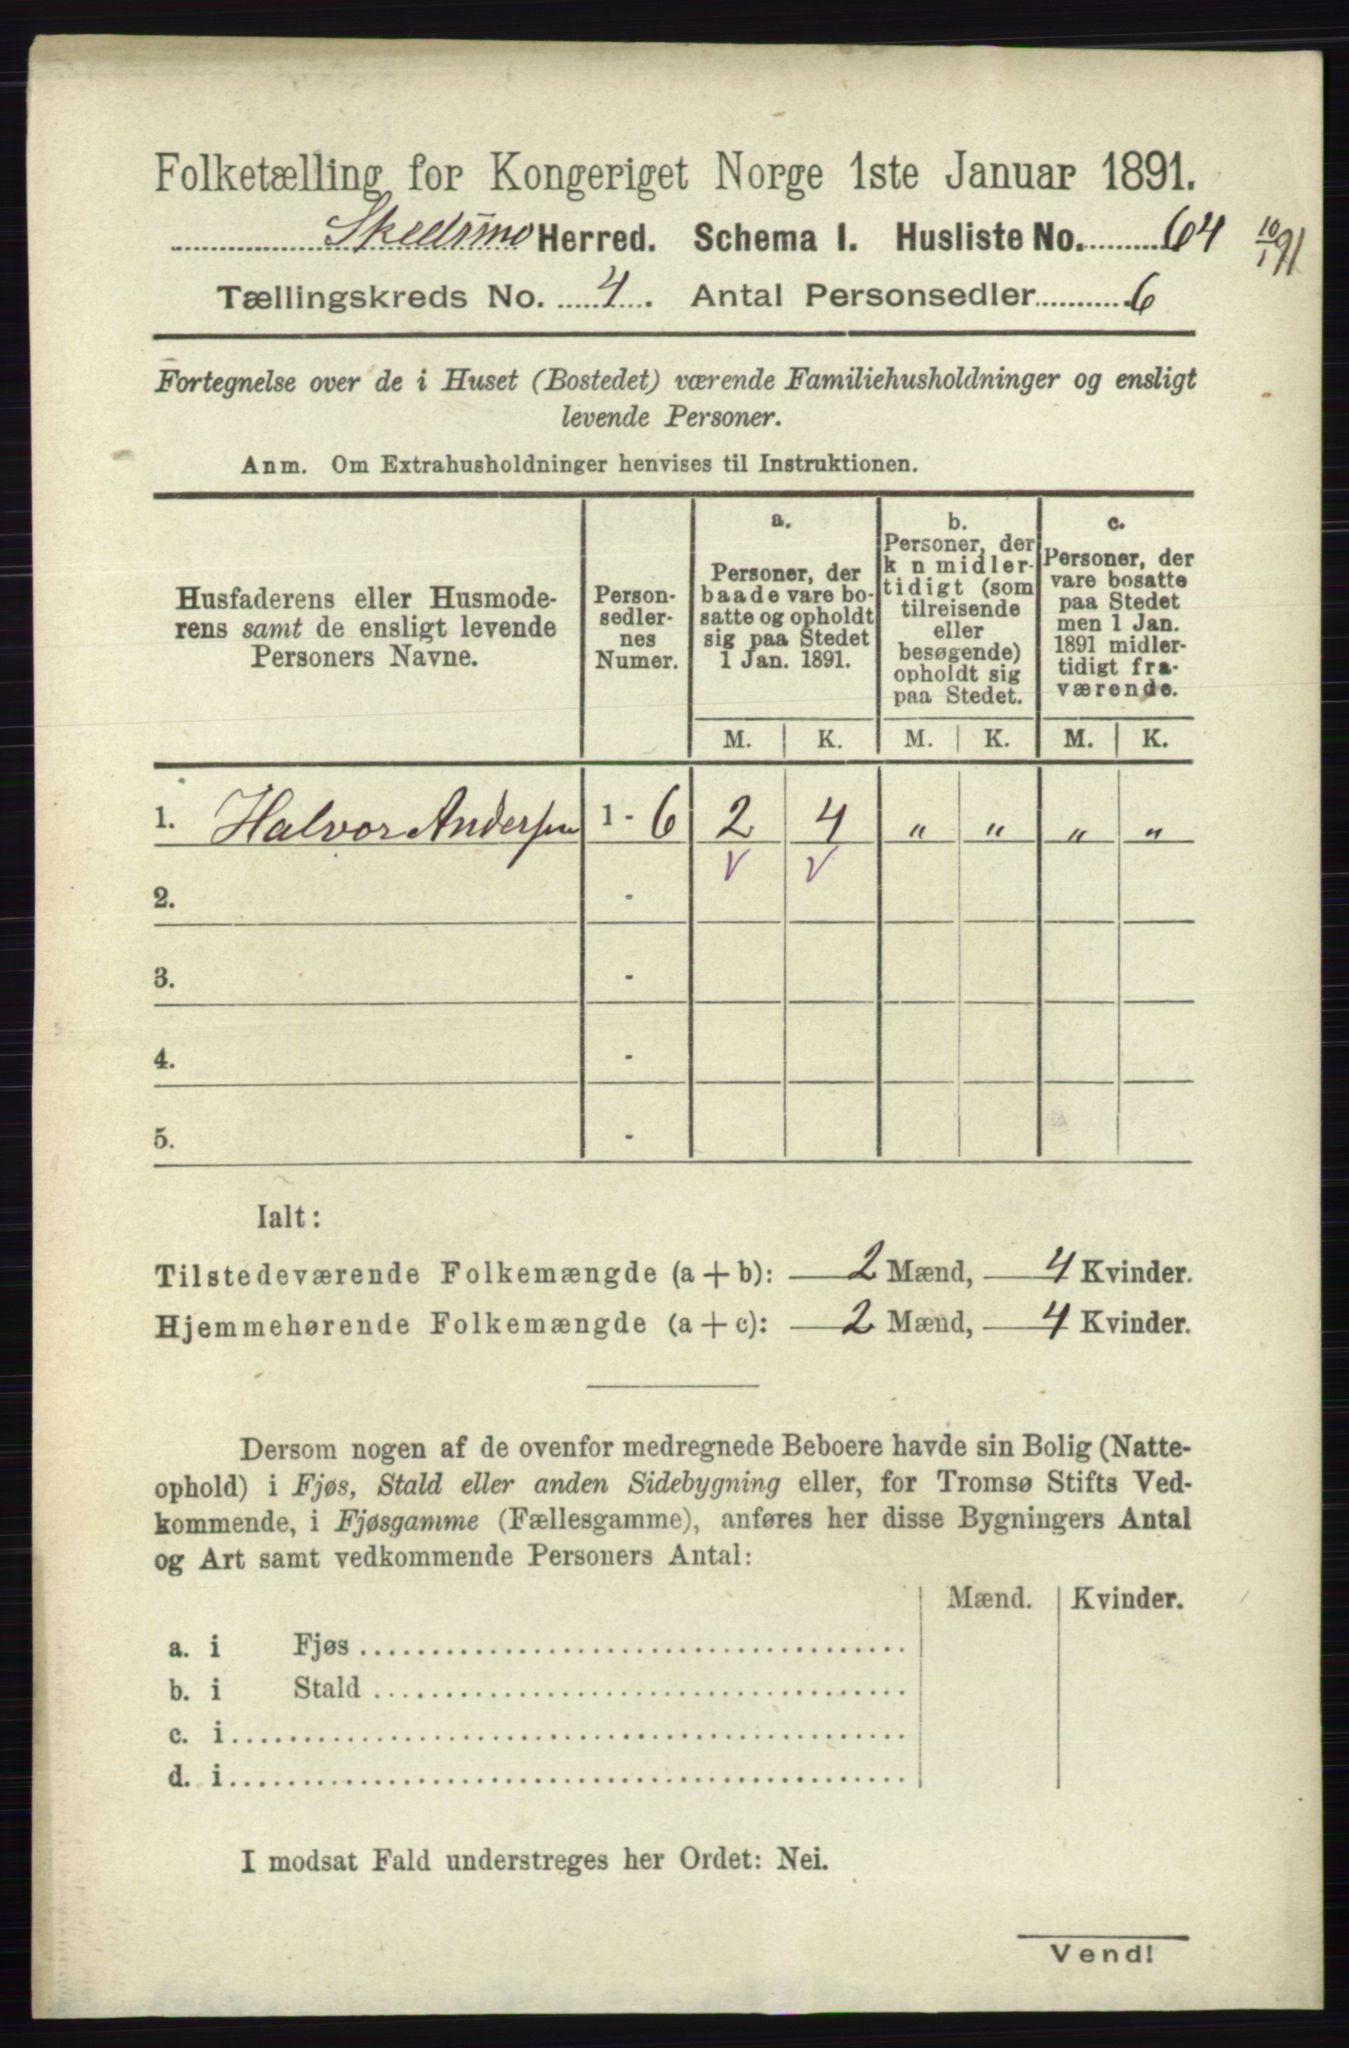 Folketælling for Kongeriget Norge 1ste Januar 1891.
Skedsmo Herred. Schema I. Husliste No. 64 10/1 91
Tællingskreds No. 4. Antal Personsedler 6
Fortegnelse over de i Huset (Bostedet) værende Familiehusholdninger og ensligt
levende Personer.
Anm. Om Extrahusholdninger henvises til Instruktionen.
Husfaderens eller Husmode-
rens samt de ensligt levende
Personers Navne.
Person-
sedler-
nes
Numer.
a.
Personer, der
baade vare bo-
satte og opholdt
sig paa Stedet
1 Jan. 1891.
b.
Personer, der
k n midler-
tidigt (som
tilreisende
eller
besøgende)
opholdt sig
paa Stedet.
c.
Personer, der
vare bosatte
paa Stedet
men 1 Jan.
1891 midler-
tidigt fra-
værende.
M. K. M. K. M. K.
1. Halvor Andersen 1 - 6 2 4 " " " "
V V
2. -
3. -
4. -
5. -
Ialt:
Tilstedeværende Folkemængde (a + b): 2 Mænd, 4 Kvinder.
Hjemmehørende Folkemængde (a + c): 2 Mænd, 4 Kvinder.
Dersom nogen af de ovenfor medregnede Beboere havde sin Bolig (Natte-
ophold) i Fjøs, Stald eller anden Sidebygning eller, for Tromsø Stifts Ved-
kommende, i Fjøsgamme (Fællesgamme), anføres her disse Bygningers Antal
og Art samt vedkommende Personers Antal:
Mænd. Kvinder.
a. i Fjøs
b. i Stald
c. i
d. i
I modsat Fald understreges her Ordet: Nei.
Vend!